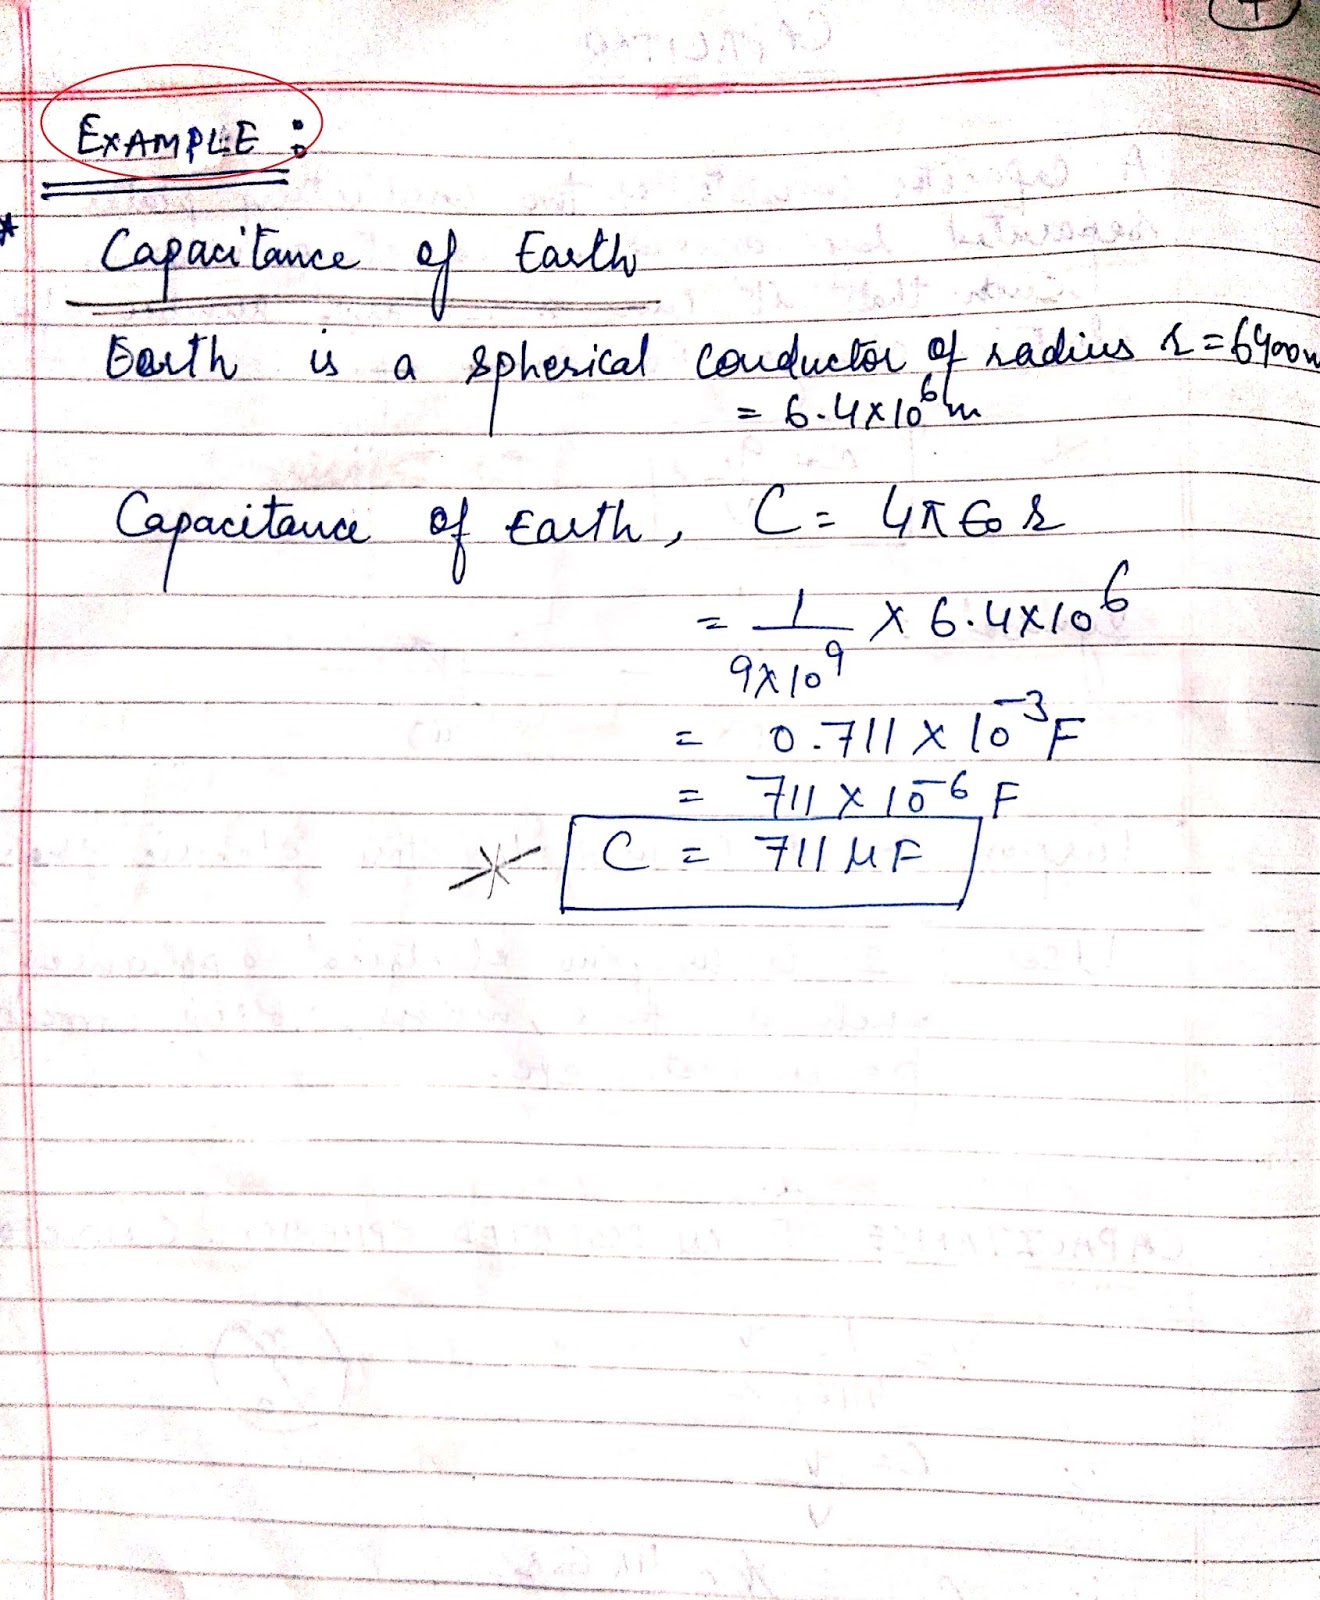 EXAMPLE :
* Capacitance of Earth
Earth is a spherical conductor of radius r = 6400
= 6.4×10⁶m
Capacitance of Earth, C = 4π∈₀ r
= 1/9×10⁹ × 6.4×10⁶
= 0.711 × 10⁻³F
= 711 × 10⁻⁶ F
C = 711 μF